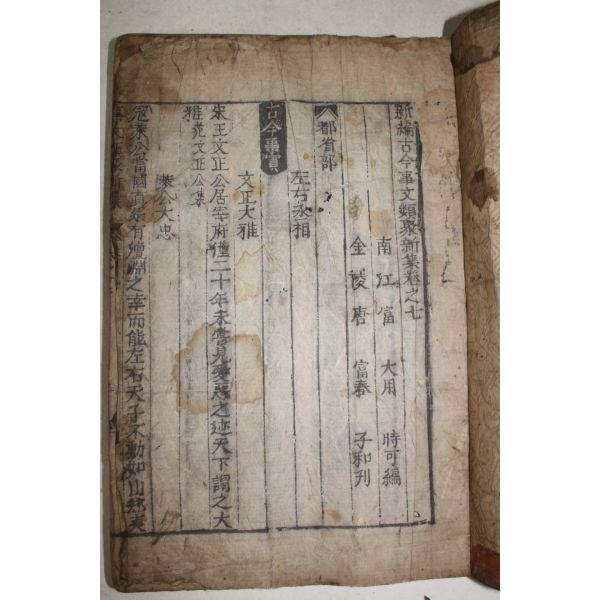 新編古今事文類聚新集卷之七
南江富 大用 時可編
金陵唐 富春 子和刊
都省部
左右丞相
古今事實
文正大雅
宋王文正公居宰府僅二十年未嘗見愛惡之迹天下謂之大
雅范文正公集
萊公大忠
寇萊公當國真宗有澶淵之幸而能左右天子不動如山